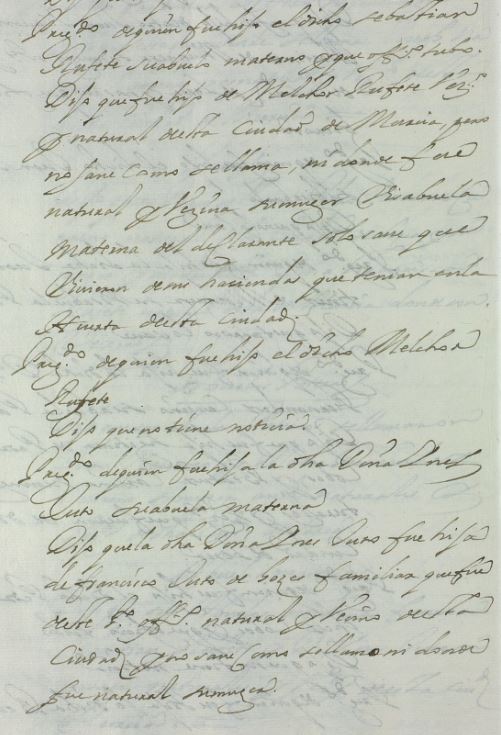 Preg.do de quien fue hijo el dicho sebastian
Rufete su abuelo materno y que off.o tubo.
Dijo que fue hijo de Melchor Rufete Vez.o
y natural desta Ciudad de Murcia, pero
no save como se llama, ni donde fue
natural y Vezina su muger Visabuela
materna del declarante solo save que
Vivieron de sus haciendas que tenian en la
Huerta desta ciudad
Preg.do de quien fue hijo el dicho Melchor
Rufete
Dijo que no tiene noticia
Preg.do de quien fue hija la dha Doña Ines
su abuela materna
Dijo que la dha Doña Ines fue hija
de francisco de familiar que fue
deste s.to off.o natural y Vecino desta
Ciudad pero save Como se llamo ni donde
fue natural su muger.